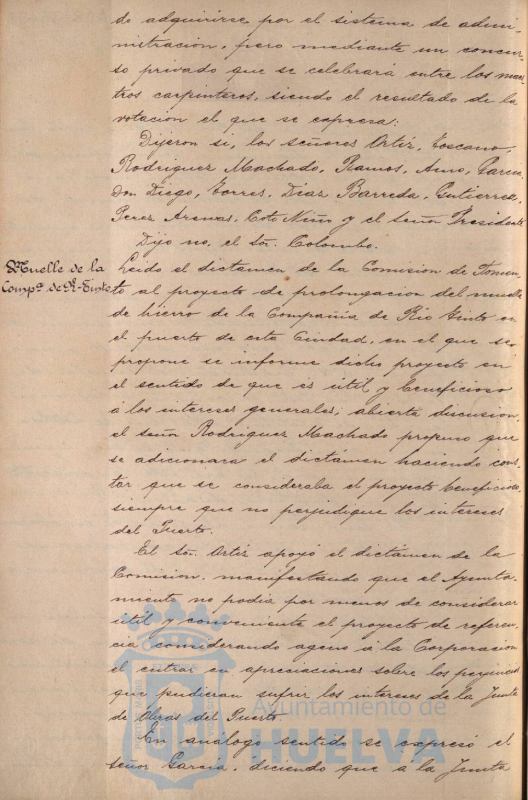 de adquirirse por el sistema de admi-
nistracion, pero mediante un concur-
so privado que se celebrará entre los maes-
tros carpinteros, siendo el resultado de la
votacion el que se expresa:
Dijeron si, los señores Ortiz, Toscano,
Rodriguez Machado, Ramos, Garcia,
Don Diego, Torres, Diaz Barreda, Gutierrez,
Perez Arenas, Coto Niño y el señor Presidente
Dijo no, el Sor. Colombo.
Muelle de la
Compª. de R-Tinto
Leido el dictamen de la Comision de Fomen-
to al proyecto de prolongacion del muelle
de hierro de la Compañia de Rio Tinto en
el puerto de esta Ciudad, en el que se
propone se informe dicho proyecto en
el sentido de que es útil y beneficioso
á los intereses generales; abierta discusion
el señor Rodriguez Machado propuso que
se adicionara el dictámen haciendo cons-
tar que se consideraba el proyecto beneficioso
siempre que no perjudique los intereses
del Puerto.
El Sor. Ortiz apoyó el dictámen de la
Comision, manifestando que el Ayunta-
miento no podia por menos de considerar
útil y conveniente el proyecto de referen-
cia considerando ageno á la Corporacion
el entrar en apreciaciones sobre los perjuicios
que pudieran sufrir los intereses de la Junta
de Obras del Puerto.
En análogo sentido se expresó el
señor Garcia, diciendo que á la Junta
Ayuntamiento de
HUELVA